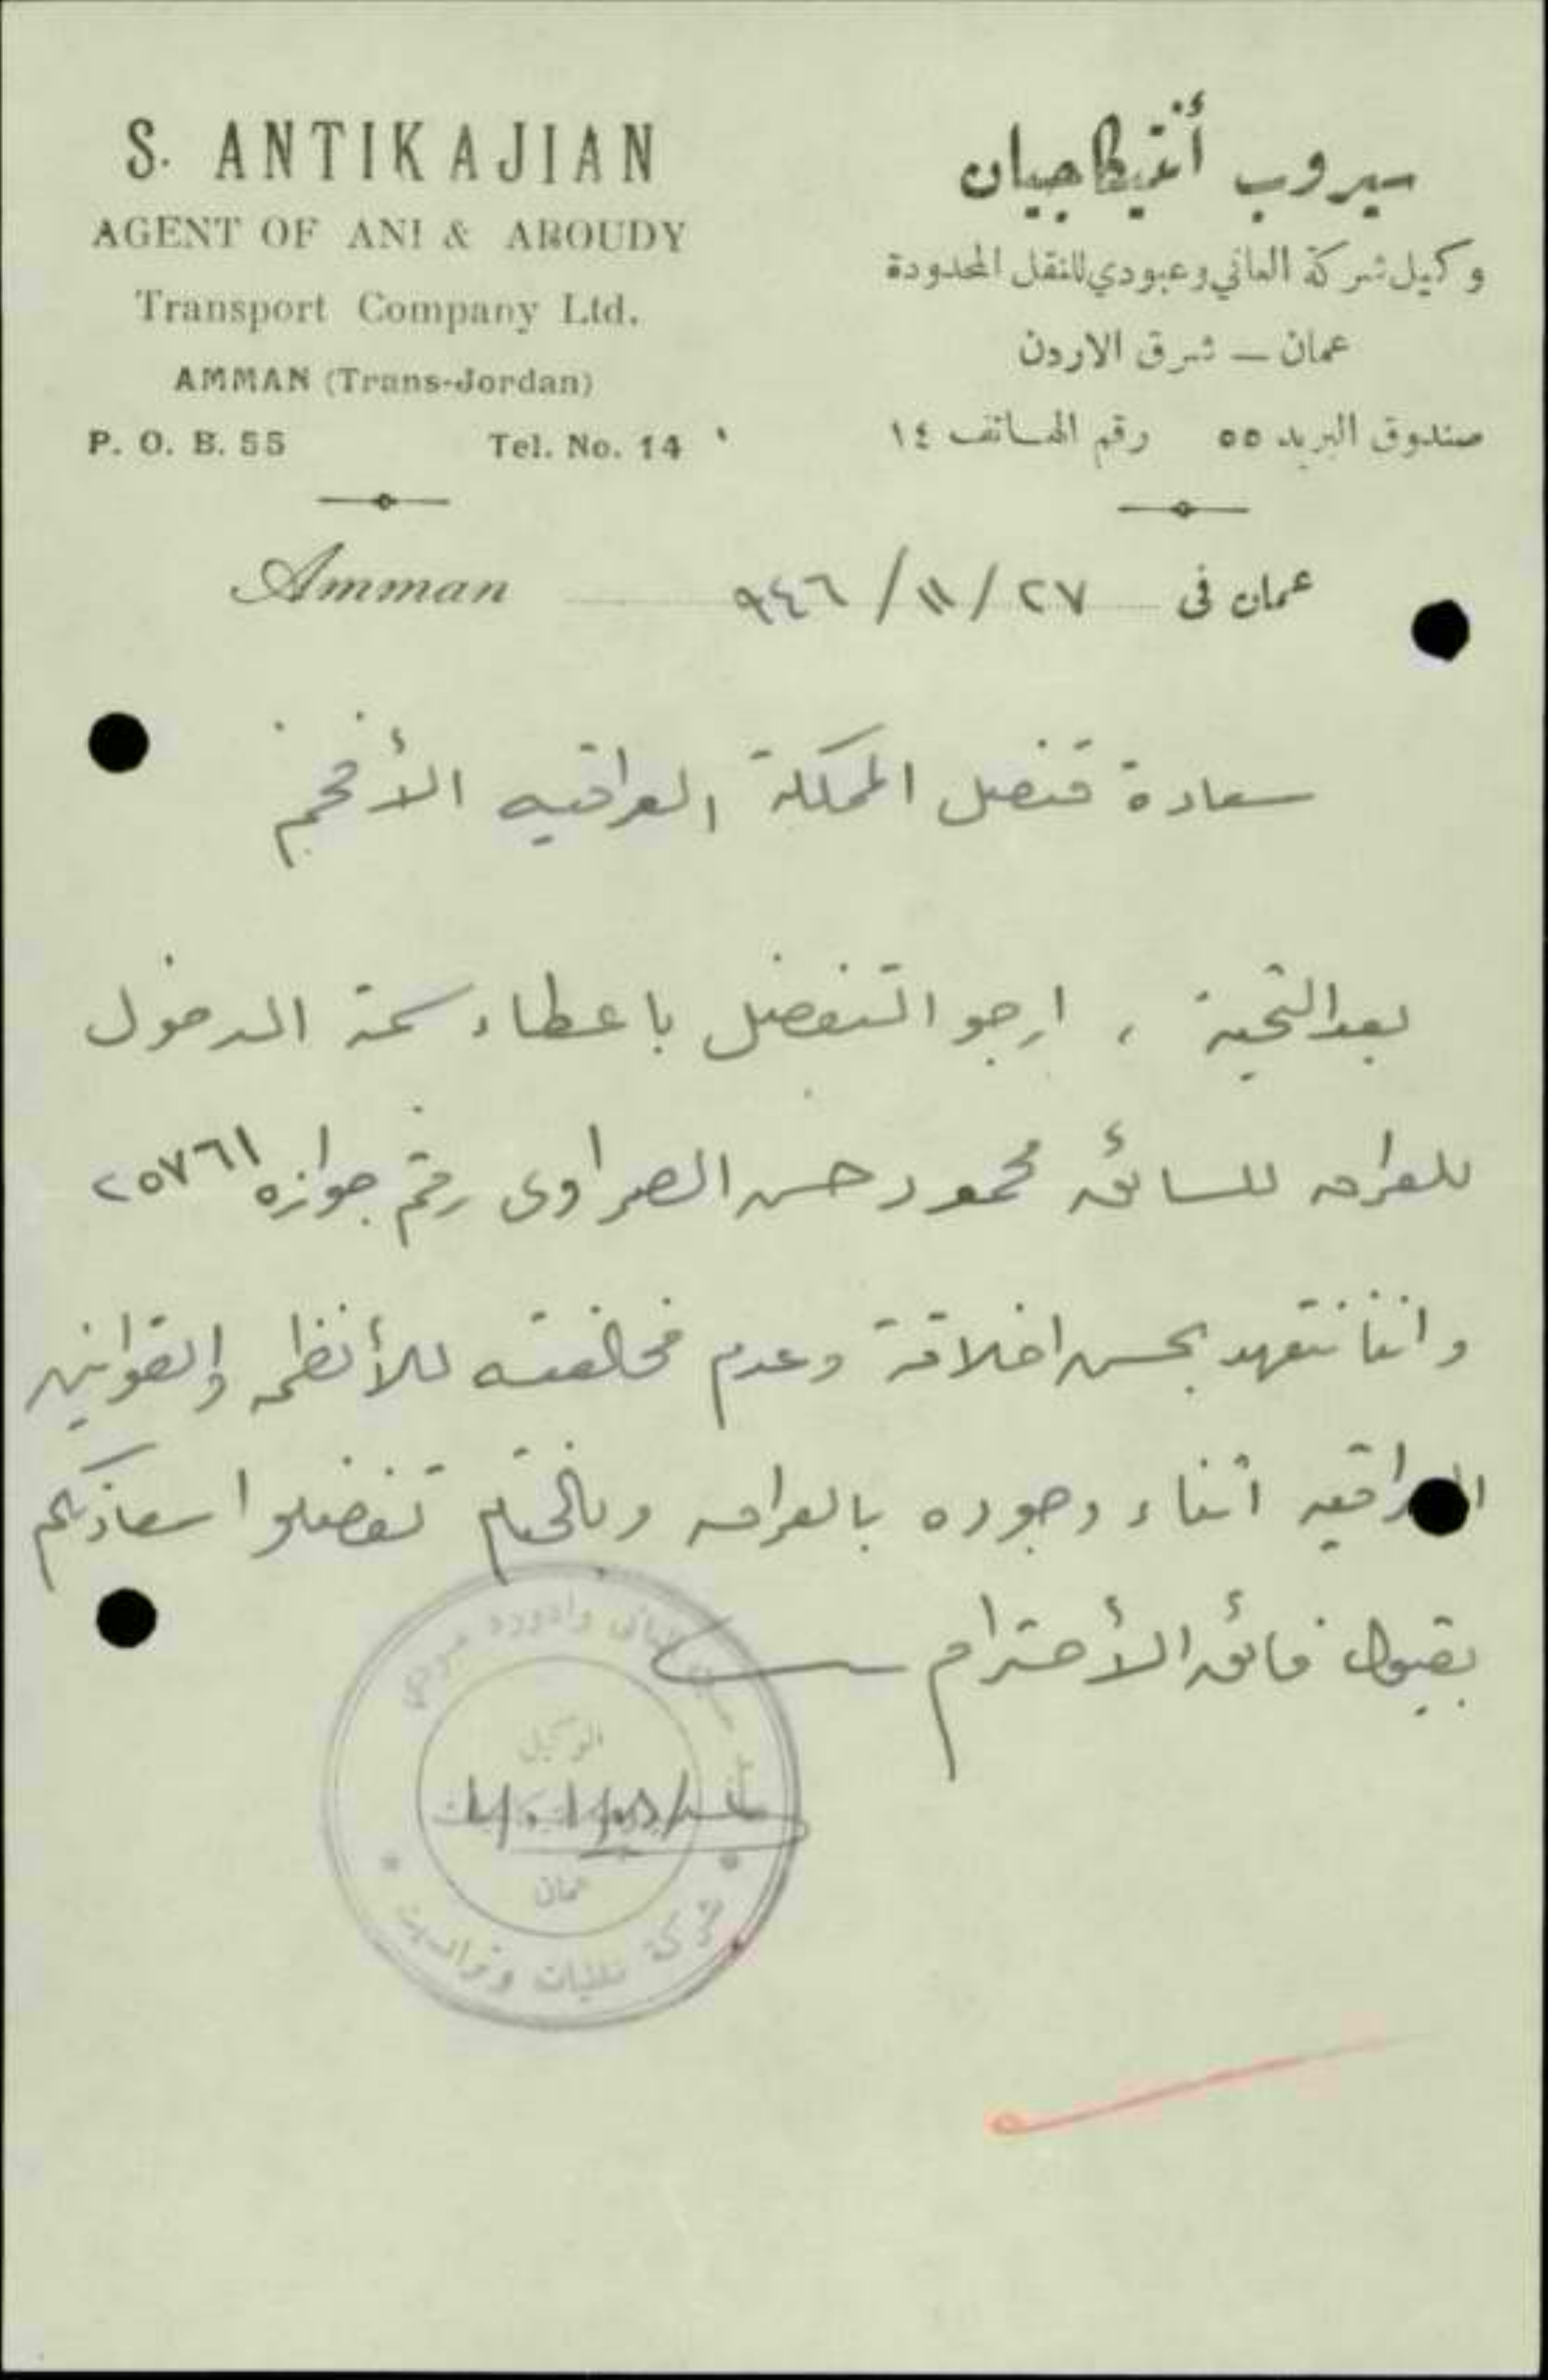 S. ANTIKAJIAN
AGENT OF ANI & ABOUDY
Transport Company Ltd.
AMMAN (Trans-Jordan)
P. O. B. 55 Tel. No. 14
سيروب أنتيكاجيان
وكيل شركة العاني وعبودي للنقل المحدودة
عمان — شرق الاردن
صندوق البريد ٥٥ رقم الهاتف ١٤
Amman
عمان فى ٢٧ / ١١ / ٩٤٦
سعادة قنصل المملكة العراقيه الأفخم
بعد التحية ، ارجو التفضل باعطاء سمة الدخول
للعراق للسائق محمود حسن الصراوى رقم جوازه ٢٥٧٦١
واننا نتعهد بحسن اخلاقة وعدم مخالفته للأنظمه والقوانين
العراقيه اثناء وجوده بالعراق وبالختام تفضلوا سعادتكم
بقبول فائق الأحترام
الوكيل
عمان
شركة نقليات